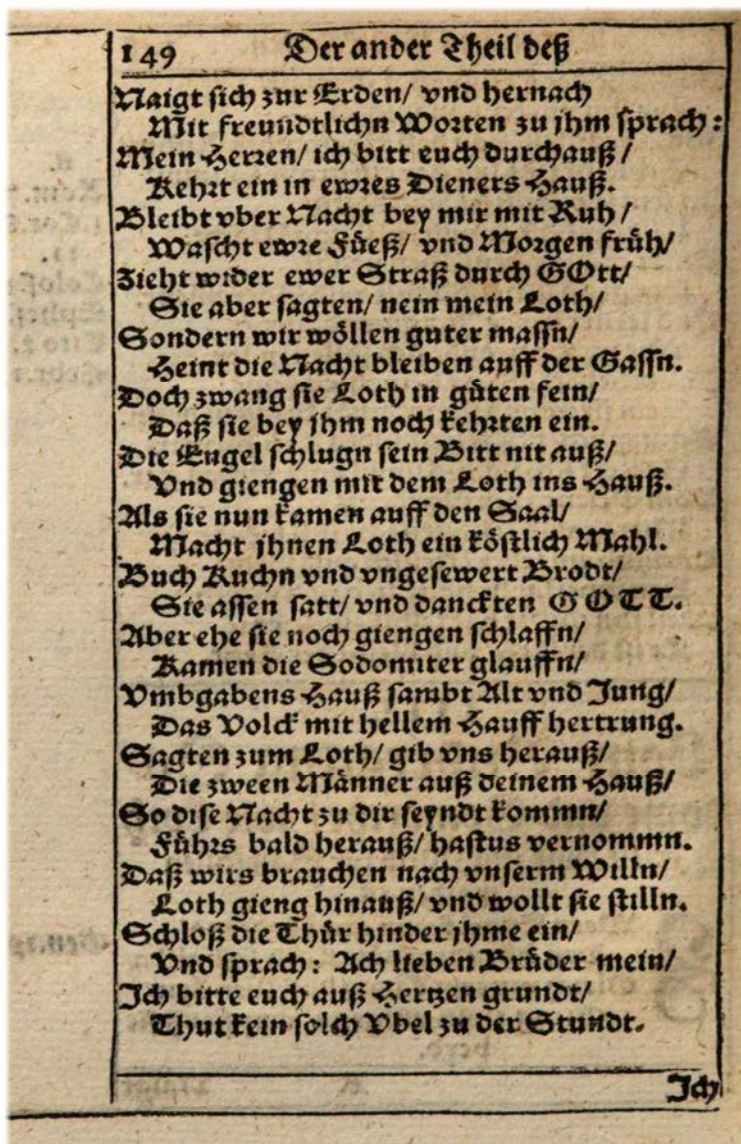 149 Der ander Theil deß
Naigt sich zur Erden/ vnd hernach
Mit freundtlichn Worten zu jhm sprach:
Mein Herren/ ich bitt euch durchauß/
Kehrt ein in ewres Dieners Hauß.
Bleibt vber Nacht bey mir mit Ruh/
Wascht ewre Füeß/ vnd Morgen früh/
Zieht wider ewer Straß durch GOtt/
Sie aber sagten/ nein mein Loth/
Sondern wir wöllen guter massn/
Heint die Nacht bleiben auff der Gassn.
Doch zwang sie Loth in güten fein/
Daß sie bey jhm noch kehrten ein.
Die Engel schlugn sein Bitt nit auß/
Vnd giengen mit dem Loth ins Hauß.
Als sie nun kamen auff den Saal/
Macht jhnen Loth ein köstlich Mahl.
Buch Kuchn vnd vngesewert Brodt/
Sie assen satt/ vnd danckten GOTT.
Aber ehe sie noch giengen schlaffn/
Kamen die Sodomiter glauffn/
Vmbgabens Hauß sambt Alt vnd Jung/
Das Volck mit hellem Hauff hertrung.
Sagten zum Loth/ gib vns herauß/
Die zween Männer auß deinem Hauß/
So dise Nacht zu dir seyndt kommn/
Führs bald herauß/ hastus vernommn.
Daß wirs brauchen nach vnserm Willn/
Loth gieng hinauß/ vnd wollt sie stilln.
Schloß die Thür hinder jhme ein/
Vnd sprach: Ach lieben Brüder mein/
Ich bitte euch auß Hertzen grundt/
Thut kein solch Vbel zu der Stundt.
Ich